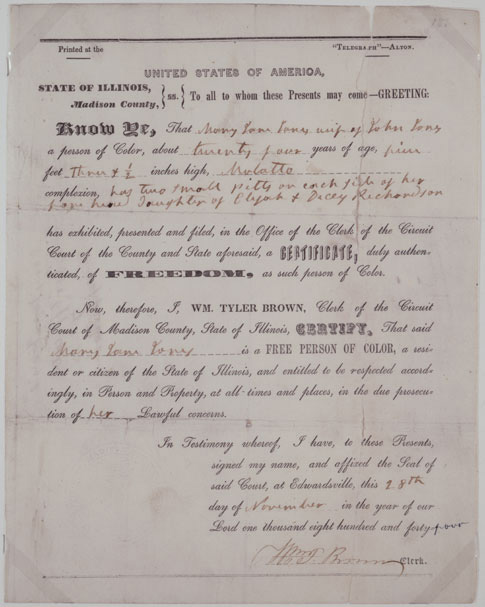 Printed at the "Telegraph"—Alton.
UNITED STATES OF AMERICA,
STATE OF ILLINOIS, } ss. { To all to whom these Presents may come—GREETING:
Madison County,
Know Ye, That Mary Jane Jones wife of John Jones
a person of Color, about twenty four years of age, five
feet Three & ½ inches high, Mulatto
complexion, has two small pitts on each side of her
face near Daughter of Elijah & Dicey Richardson
has exhibited, presented and filed, in the Office of the Clerk of the Circuit
Court of the County and State aforesaid, a CERTIFICATE, duly authen-
ticated, of FREEDOM, as such person of Color.
Now, therefore, I, WM. TYLER BROWN, Clerk of the Circuit
Court of Madison County, State of Illinois, CERTIFY, That said
Mary Jane Jones is a FREE PERSON OF COLOR, a resi-
dent or citizen of the State of Illinois, and entitled to be respected accord-
ingly, in Person and Property, at all times and places, in the due prosecu-
tion of her Lawful concerns.
In Testimony whereof, I have, to these Presents,
signed my name, and affixed the Seal of
said Court, at Edwardsville, this 28th
day of November in the year of our
Lord one thousand eight hundred and forty four
Wm T. Brown Clerk.